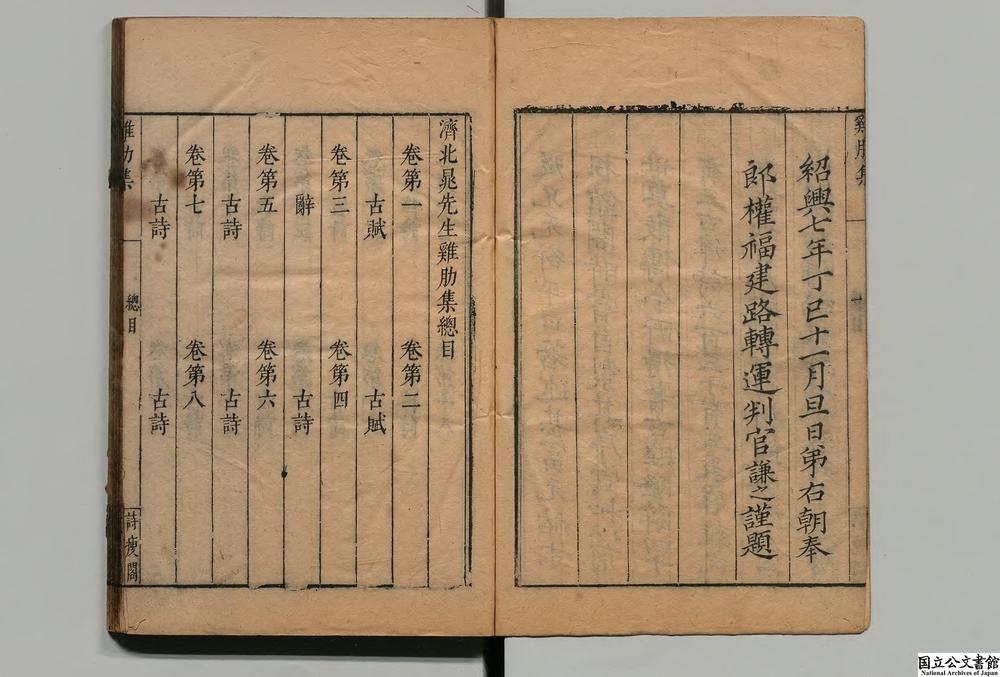 雞肋集
紹興七年丁巳十一月旦日弟右朝奉
郎權福建路轉運判官謙之謹題
濟北晁先生雞肋集總目
卷第一 卷第二
古賦 古賦
卷第三 卷第四
辭 古詩
卷第五 卷第六
古詩 古詩
卷第七 卷第八
古詩 古詩
雞肋集 總目 詩瘦閣
国立公文書館
National Archives of Japan